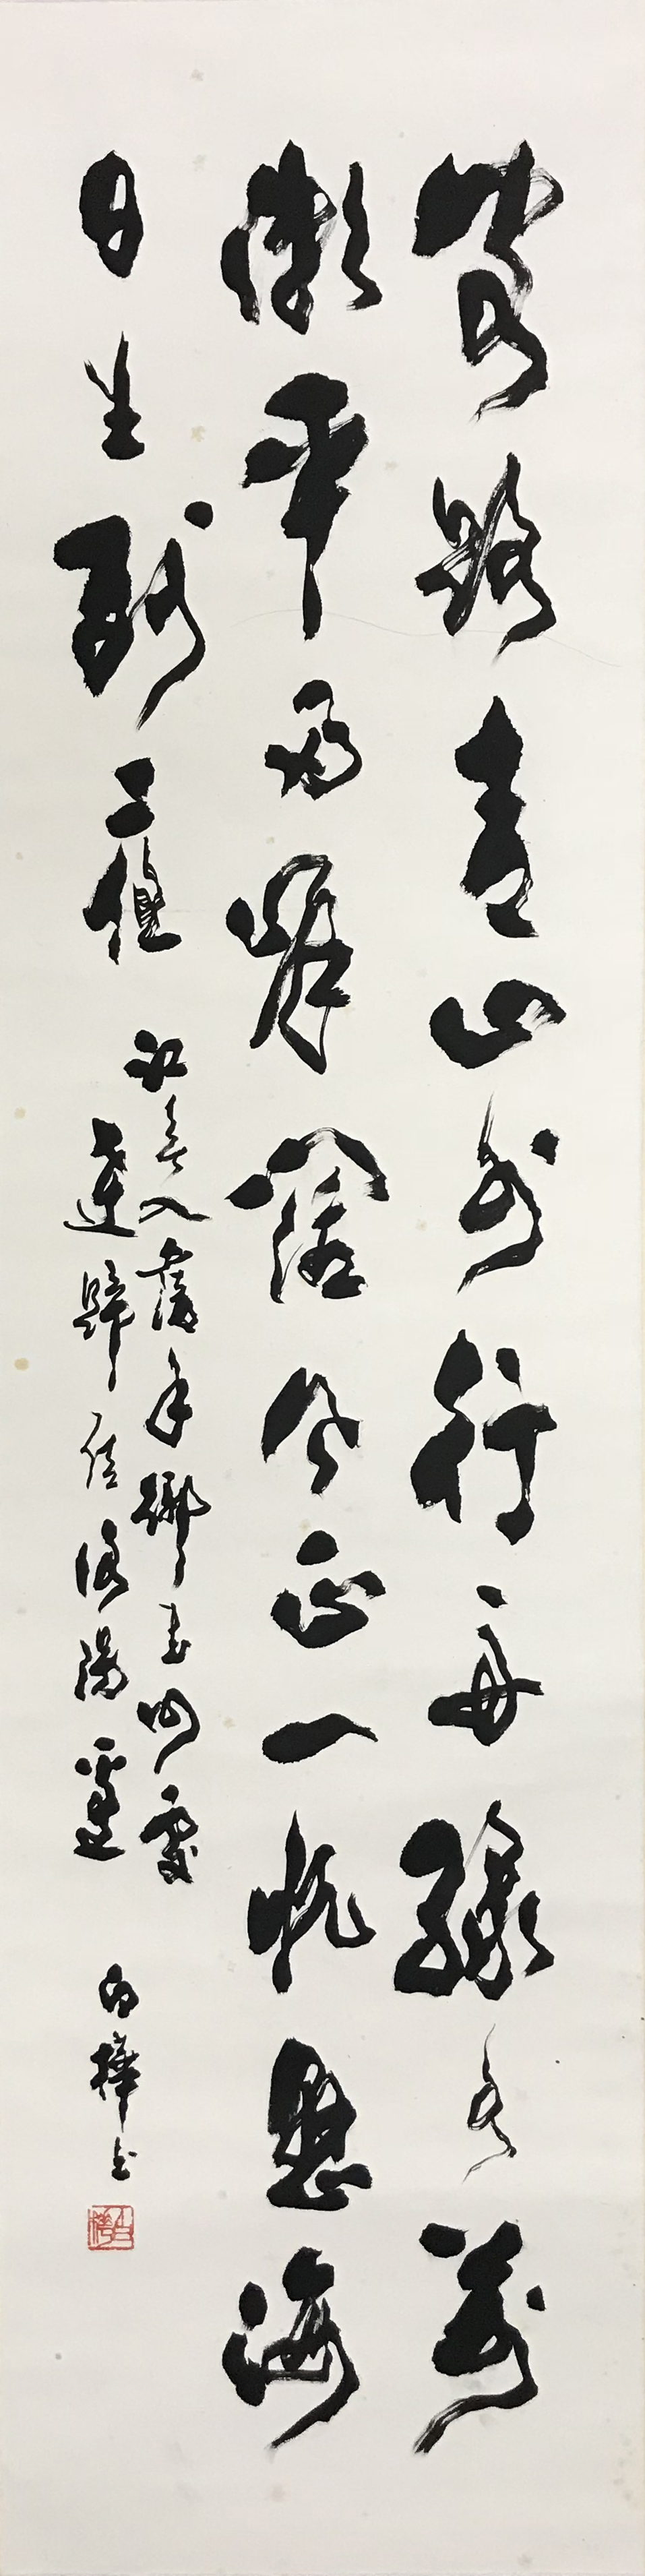 客路青山外行舟綠水前
潮平兩岸闊風正一帆懸海
日生殘夜江春入舊年鄉書何處
達歸雁洛陽邊 白樺書